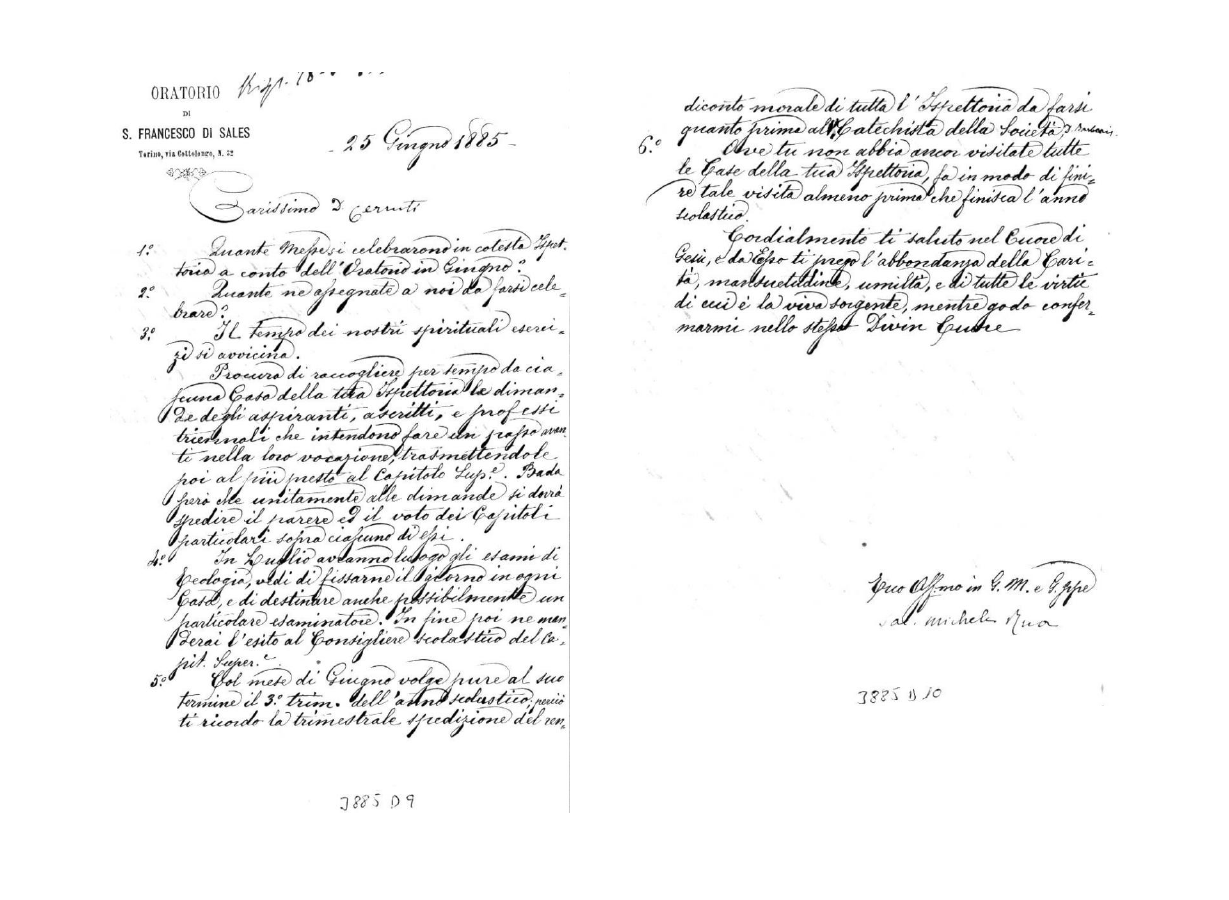 ORATORIO
DI
S. FRANCESCO DI SALES
Torino, via Cottolengo, N. 32
- 25 Giugno 1885 -
Carissimo D. Cerruti
1.° Quante Messe si celebrarono in cotesta Ispet-
toria a conto dell'Oratorio in Giugno?
2.° Quante ne assegnate a noi da farsi cele-
brare?
3.° Il tempo dei nostri spirituali eserci-
zi si avvicina.
Procura di raccogliere per tempo da cia-
scuna Casa della tua Ispettoria le diman-
de degli aspiranti, ascritti, e professi
triennali che intendono fare un passo avan-
ti nella loro vocazione, trasmettendole
poi al più presto al Capitolo Sup.e. Bada
però che unitamente alle dimande si dovrà
spedire il parere ed il voto dei Capitoli
particolari sopra ciascuno di essi.
4.° In Luglio avranno luogo gli esami di
Teologia, vedi di fissarne il giorno in ogni
Casa, e di destinare anche possibilmente un
particolare esaminatore. In fine poi ne man-
derai l'esito al Consigliere scolastico del Ca-
pit. Super.e
5.° Col mese di Giugno volge pure al suo
termine il 3.° trim. dell'anno scolastico, perciò
ti ricordo la trimestrale spedizione del ren-
J885 D9
diconto morale di tutta l'Ispettoria da farsi
quanto prima al Catechista della Società
6.° Ove tu non abbia ancor visitate tutte
le Case della tua Ispettoria, fa in modo di fini-
re tale visita almeno prima che finisca l'anno
scolastico.
Cordialmente ti saluto nel Cuore di
Gesù, e da Esso ti prego l'abbondanza della Cari-
tà, mansuetudine, umiltà, e di tutte le virtù
di cui è la viva sorgente, mentre godo confer-
marmi nello stesso Divin Cuore
Tuo Aff.mo in G. M. e G.ppe
Sac. Michele Rua
J885 D10